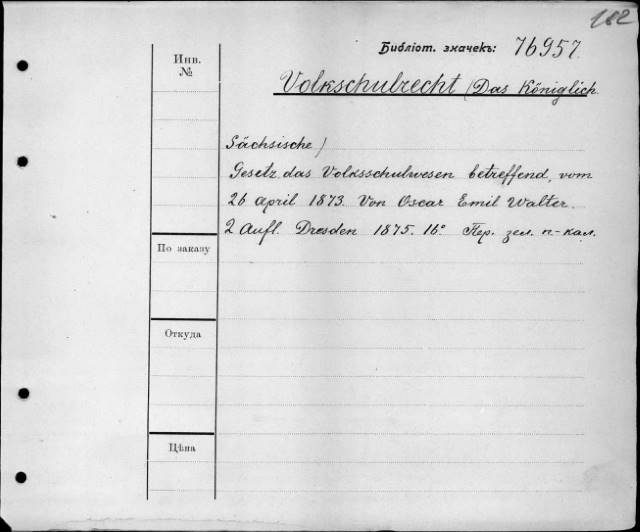 182
Библіот. значекъ: 76957.
Инв.
№
Volkschulrecht (Das Königlich
Sächsische)
Gesetz das Volksschulwesen betreffend, vom
26 april 1873. Von Oscar Emil Walter.
2 Aufl. Dresden 1875. 16° Пер. зел. п-кал.
По заказу
Откуда
Цѣна